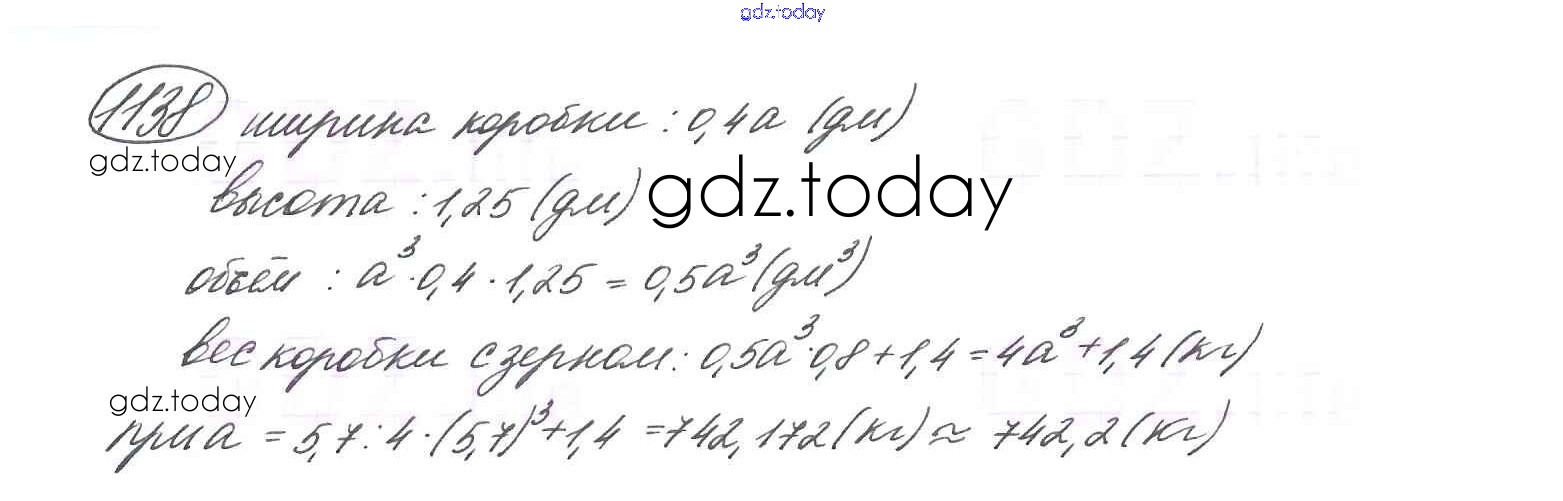 gdz.today
1138 ширина коробки : 0,4а (дм)
gdz.today
высота : 1,25 (дм) gdz.today
объём : а³ · 0,4 · 1,25 = 0,5а³ (дм³)
вес коробки с зерном : 0,5а³ · 0,8 + 1,4 = 4а³ + 1,4 (кг)
gdz.today
при а = 5,7 : 4 · (5,7)³ + 1,4 = 742,172 (кг) ≈ 742,2 (кг)